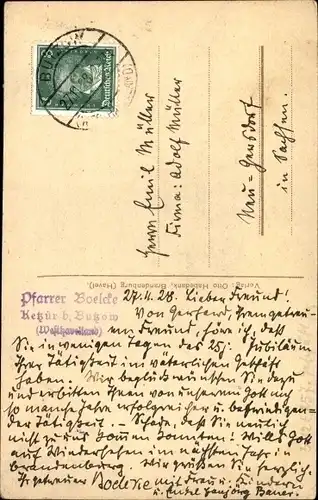 BUTZOW
Deutsches Reich
Herrn Emil Müller
Firma: Adolf Müller
Neu-Gersdorf
in Sachsen.
Verlag: Otto Habedank, Brandenburg (Havel).
Pfarrer Boelcke
Ketzür b. Butzow
(Westhavelland)
27.4.28. Lieber Freund!
Von Gerhard, Ihrem getreu-
en Freund, höre ich, daß
Sie in wenigen Tagen das 25j. Jubiläum
Ihrer Tätigkeit im väterlichen Geschäft
haben. Wir beglückwünschen Sie dazu
und erbitten Ihnen von unserm Gott noch
so manche Jahre erfolgreicher u. befriedigen-
der Tätigkeit. - Schade, daß Sie neulich
nicht zu uns kommen konnten! Will's Gott
auf Wiedersehen im nächsten Jahr in
Brandenburg. Wir grüßen Sie herzlich.
Ihr getreuer Boelcke mit Frau u. Kindern
u. Enkel Hansjörg Bauer.